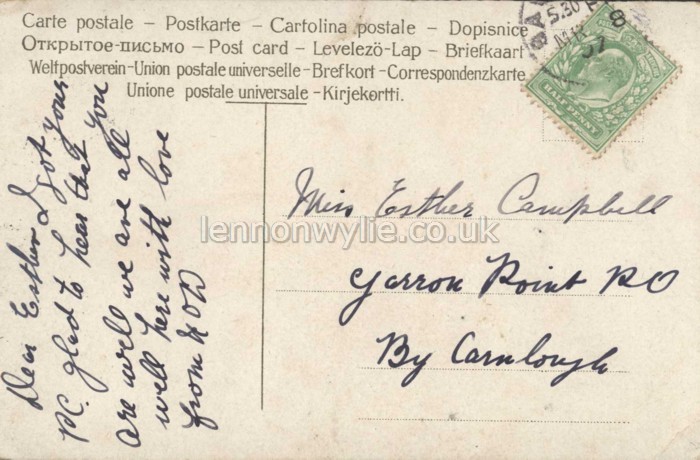 Carte postale – Postkarte – Cartolina postale – Dopisnice
Открытое-письмо – Post card – Levelezö-Lap – Briefkaart
Weltpostverein-Union postale universelle-Brefkort-Correspondenzkarte
Unione postale universale -Kirjekortti.
5.30 P
8
MR
07
HALF PENNY
Dear Esther I got your
P.C. glad to hear that you
are well we are all
well here with love
from
Miss Esther Campbell
Garron Point PO
By Carnlough
lennonwylie.co.uk